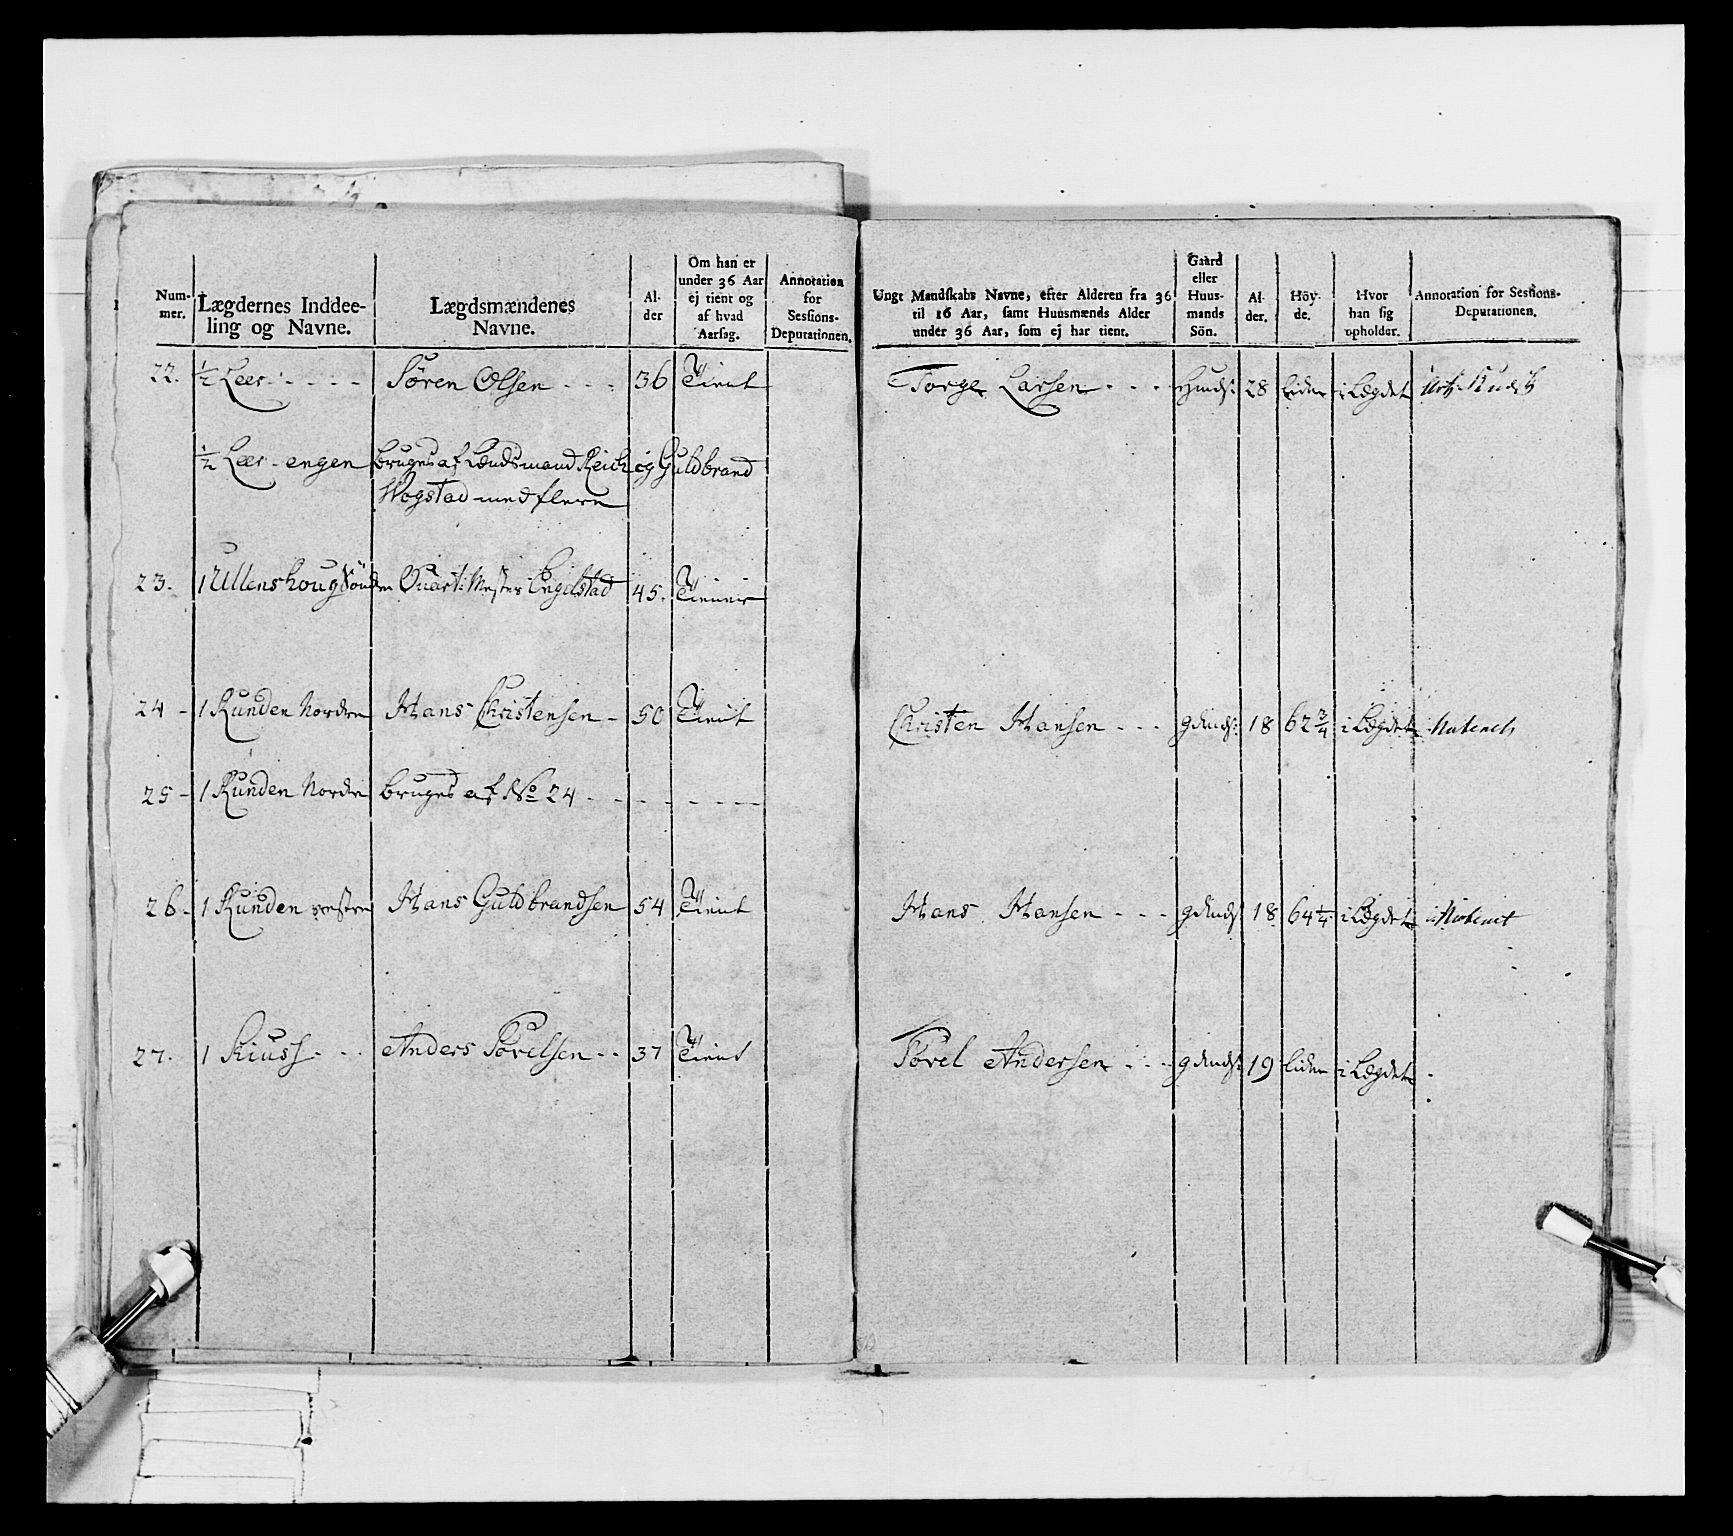 Num-
mer.
Lægdernes Inddee-
ling og Navne.
Lægdsmændenes
Navne.
Al-
der
Om han er
under 36 Aar
ej tient og
af hvad
Aarsag.
Annotation
for
Sessions-
Deputationen.
Ungt Mandskabs Navne, efter Alderen fra 36
til 16 Aar, samt Huusmænds Alder
under 36 Aar, som ej har tient.
Gaard
eller
Huus-
mands
Sön.
Al-
der.
Höy-
de.
Hvor
han sig
opholder.
Annotation for Sessions-
Deputationen.
22. ½ Leer - - - - Sören Olsen - - - 36 Tient Torge Larsen - - - Huuds: 28 liden i Lægdet
½ Leer-engen bruges af Lændsmand Reich og Guldbrand
Wogstad med flere
23. 1 Ullenshoug Söndre Quart: Mester Engelstad 45. Tiener
24 - 1 Runden Nordre Hans Christensen - 50 Tient Christen Hansen - - - gdmds: 18 62¾ i Lægdet Natenel
25 - 1 Runden Nordre bruges af No 24 - - - - - -
26 - 1 Runden vestre Hans Guldbrandsen 54 Tient Hans Hansen - - - gdmds: 18 64¼ i Lægdet
27. 1 Kiuss - - - Anders Torelsen - - 37 Tient Torel Andersen - - - gdmds: 19 liden i Lægdet -